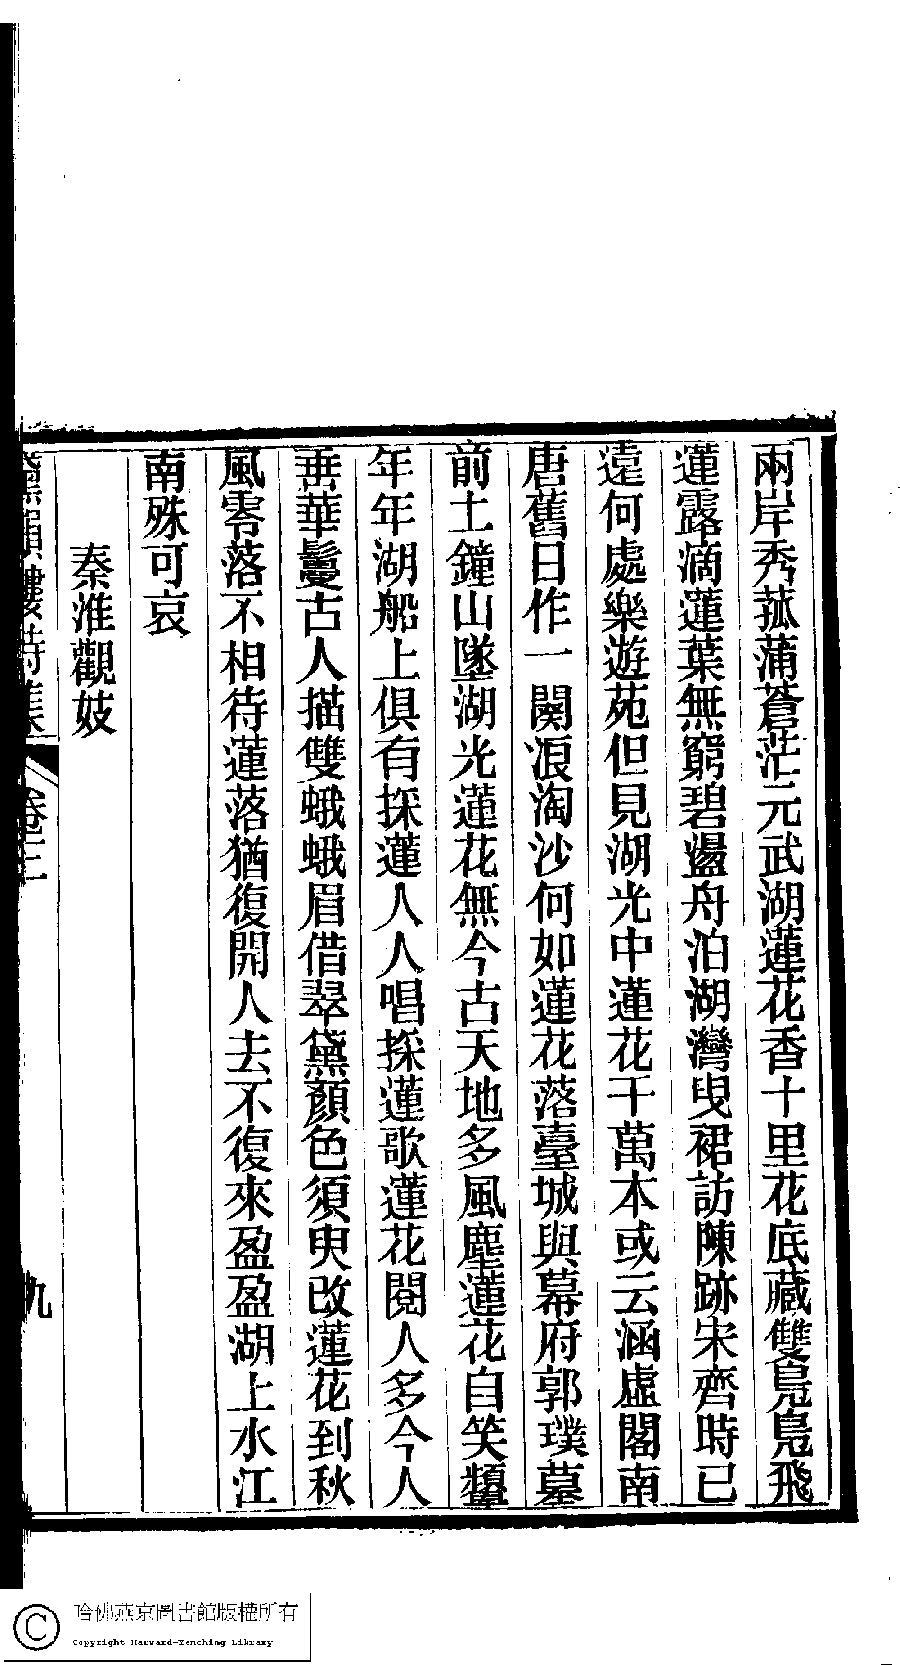 兩岸秀菰蒲蒼茫元武湖蓮花香十里花底藏雙鳧鳧飛
蓮露滴蓮葉無窮碧盪舟泊湖灣曳裙訪陳跡宋齊時已
遠何處樂遊苑但見湖光中蓮花千萬本或云涵虛閣南
唐舊日作一闋浪淘沙何如蓮花落臺城與幕府郭璞墓
前土鐘山墜湖光蓮花無今古天地多風塵蓮花自笑顰
年年湖船上俱有採蓮人人唱採蓮歌蓮花閱人多今人
垂華鬘古人描雙蛾蛾眉借翠黛顏色須臾改蓮花到秋
風零落不相待蓮落猶復開人去不復來盈盈湖上水江
南殊可哀
秦淮觀妓
樓詩集
卷三
九
哈佛燕京圖書館版權所有
Copyright Harvard-Yenching Library